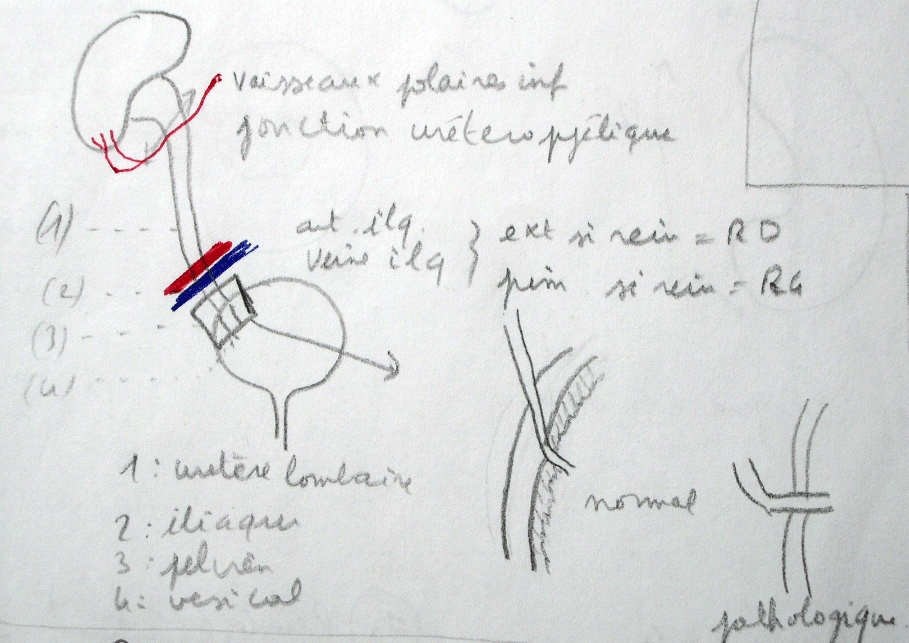 vaisseaux polaires inf
jonction urétéropyélique
(1)
art. ilq.
veine ilq
ext si rein = RD
prim si rein = RG
(2)
(3)
(4)
normal
pathologique
1: uretère lombaire
2: iliaque
3: pelvien
4: vesical